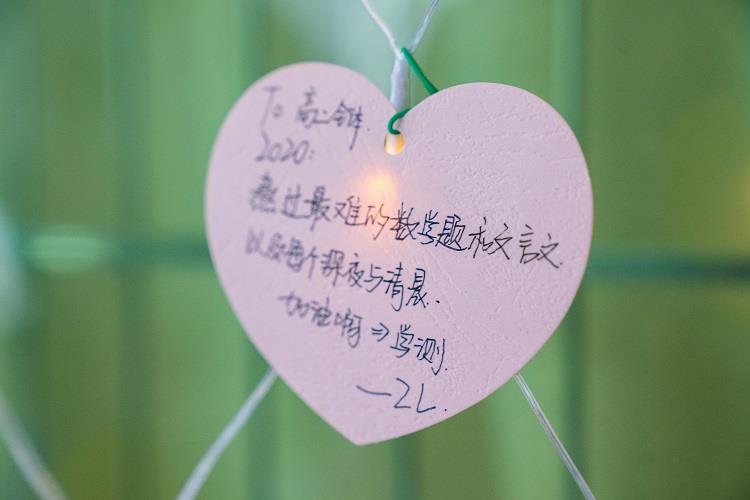 To 高二全体.
2020:
熬过最难的数学题和文言文.
以及每个深夜与清晨.
加油啊⇒学测
—ZL.